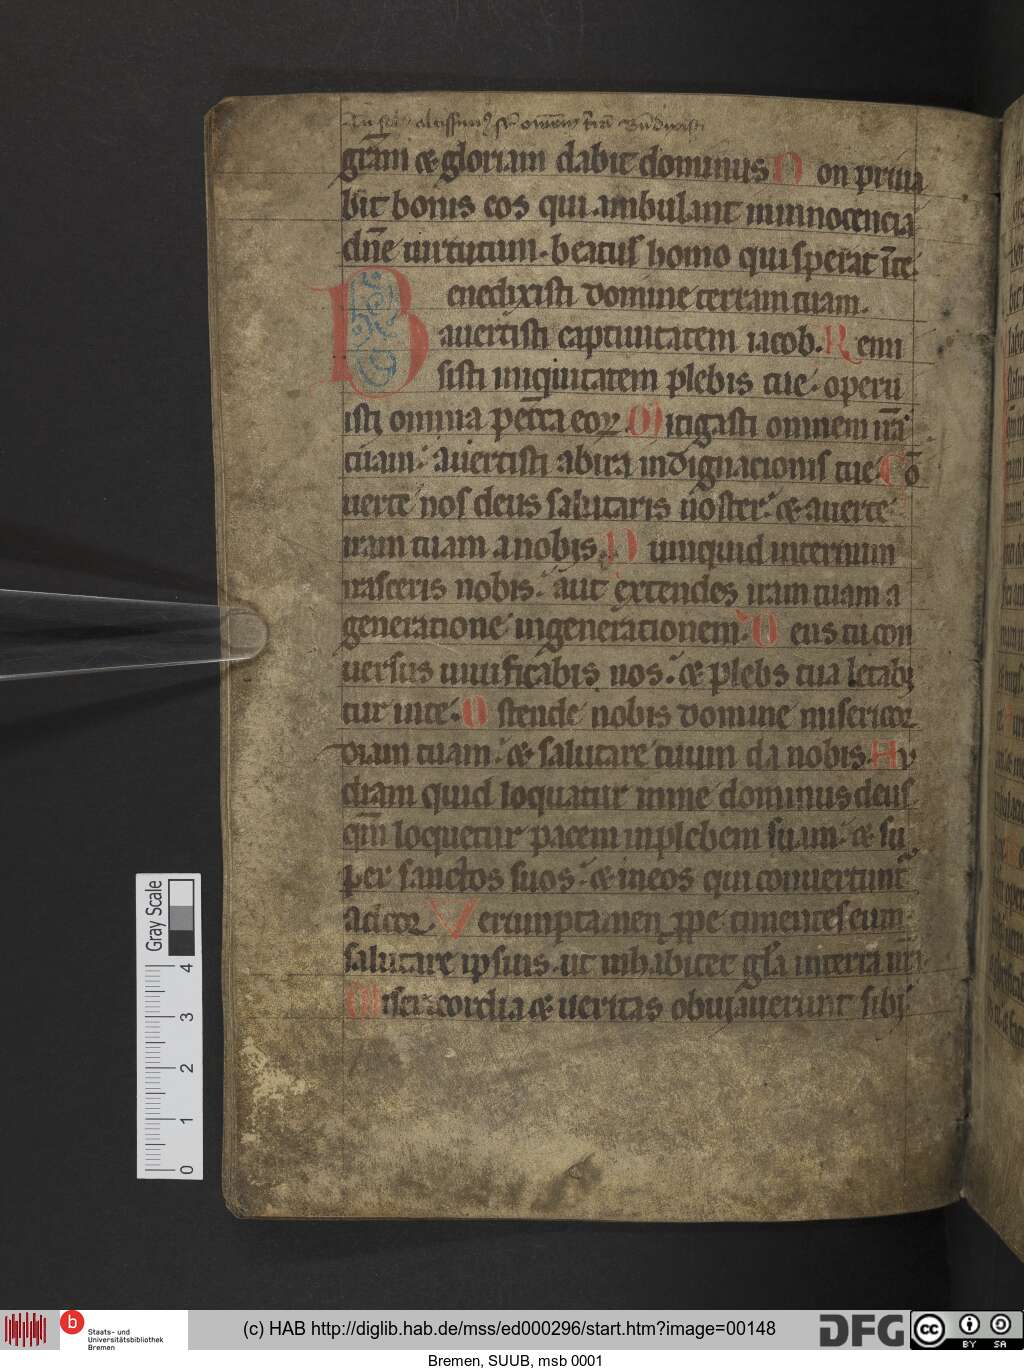 Tu solus altissimus sup omnem trā Bndixisti
grām & gloriam dabit dominus Non priua
bit bonis eos qui ambulant in innocencia
dñe uirtutum. beatus homo qui sperat ī te.
Benedixisti domine terram tuam.
auertisti captiuitatem iacob. Remi
sisti iniquitatem plebis tue. operu
isti omnia peccā eoꝝ. Mitigasti omnem irā
tuam. auertisti ab ira indignacionis tue. Cō
uerte nos deus salutaris noster. & auerte
iram tuam a nobis. Nunquid ineternum
irasceris nobis. aut extendes iram tuam a
generatione in generationem. Deus tu con
uersus uiuificabis nos. & plebs tua letabi
tur in te. Ostende nobis domine misericor
diam tuam. & salutare tuum da nobis. Au
diam quid loquatur in me dominus deus
qm̄ loquetur pacem in plebem suam. & su
per sanctos suos. & in eos qui conuertunt̄
ad cor. Verumptamen ꝓpe timentes eum
salutare ipsius. ut inhabitet gl̄a in terra nr̄a.
Misericordia & ueritas obuiauerunt sibi
Gray Scale
4
3
2
1
0
b
Staats- und
Universitätsbibliothek
Bremen
(c) HAB http://diglib.hab.de/mss/ed000296/start.htm?image=00148
DFG
cc
BY
SA
Bremen, SUUB, msb 0001